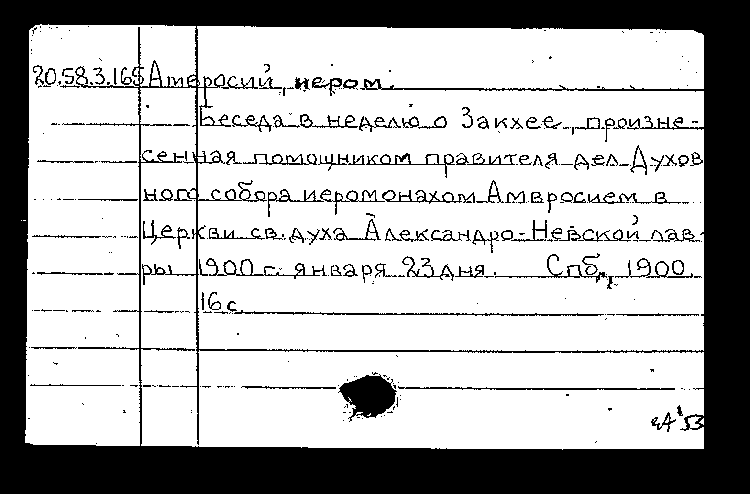 20.58.3.165 Амвросий, иером.
Беседа в неделю о Закхее, произне-
сенная помощником правителя дел Духов
ного собора иеромонахом Амвросием в
Церкви св. духа Александро-Невской лав-
ры 1900 г. января 23 дня. Спб, 1900.
16 с.